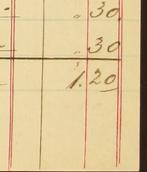 " 30
" 30
1.20